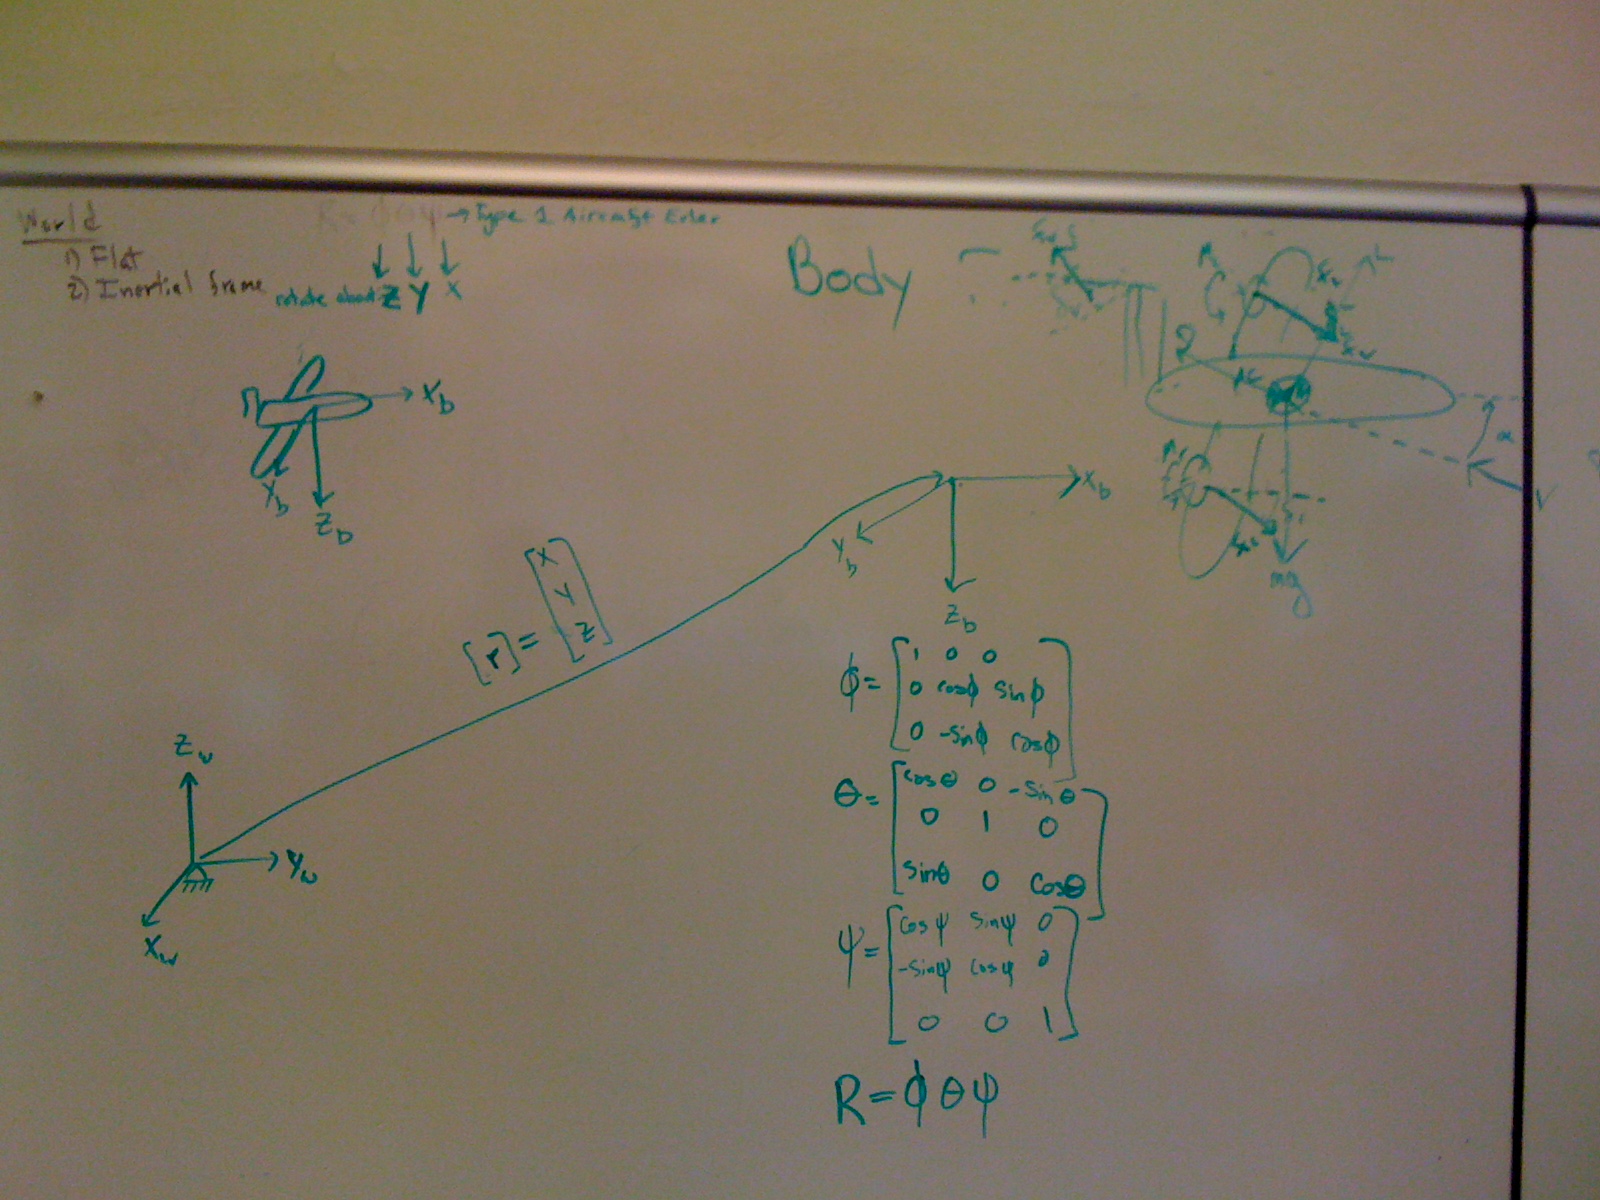 World
1) Flat
2) Inertial frame
R = φ θ ψ → Type 1 Aircraft Euler
rotate about Z Y X
Body
X_b
X_b
Z_b
L
α
V
mg
X_b
Y_b
Z_b
[r] = [X
Y
Z]
Z_w
Y_w
X_w
φ = [1 0 0
0 cosφ sinφ
0 -sinφ cosφ]
θ = [cosθ 0 -sinθ
0 1 0
sinθ 0 cosθ]
ψ = [cosψ sinψ 0
-sinψ cosψ 0
0 0 1]
R = φ θ ψ